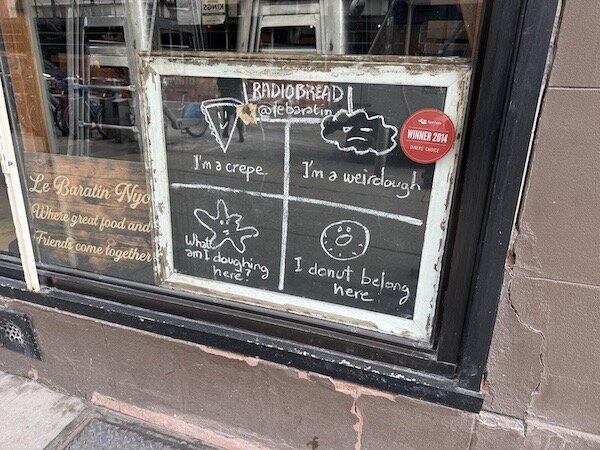 KINGS
RADIOBREAD
@lebaratin
I'm a crepe
I'm a weirdough
What
am I doughing
here?
I donut belong
here.
WINNER 2014
DINERS' CHOICE
Le Baratin Nyc
Where great food and
Friends come together